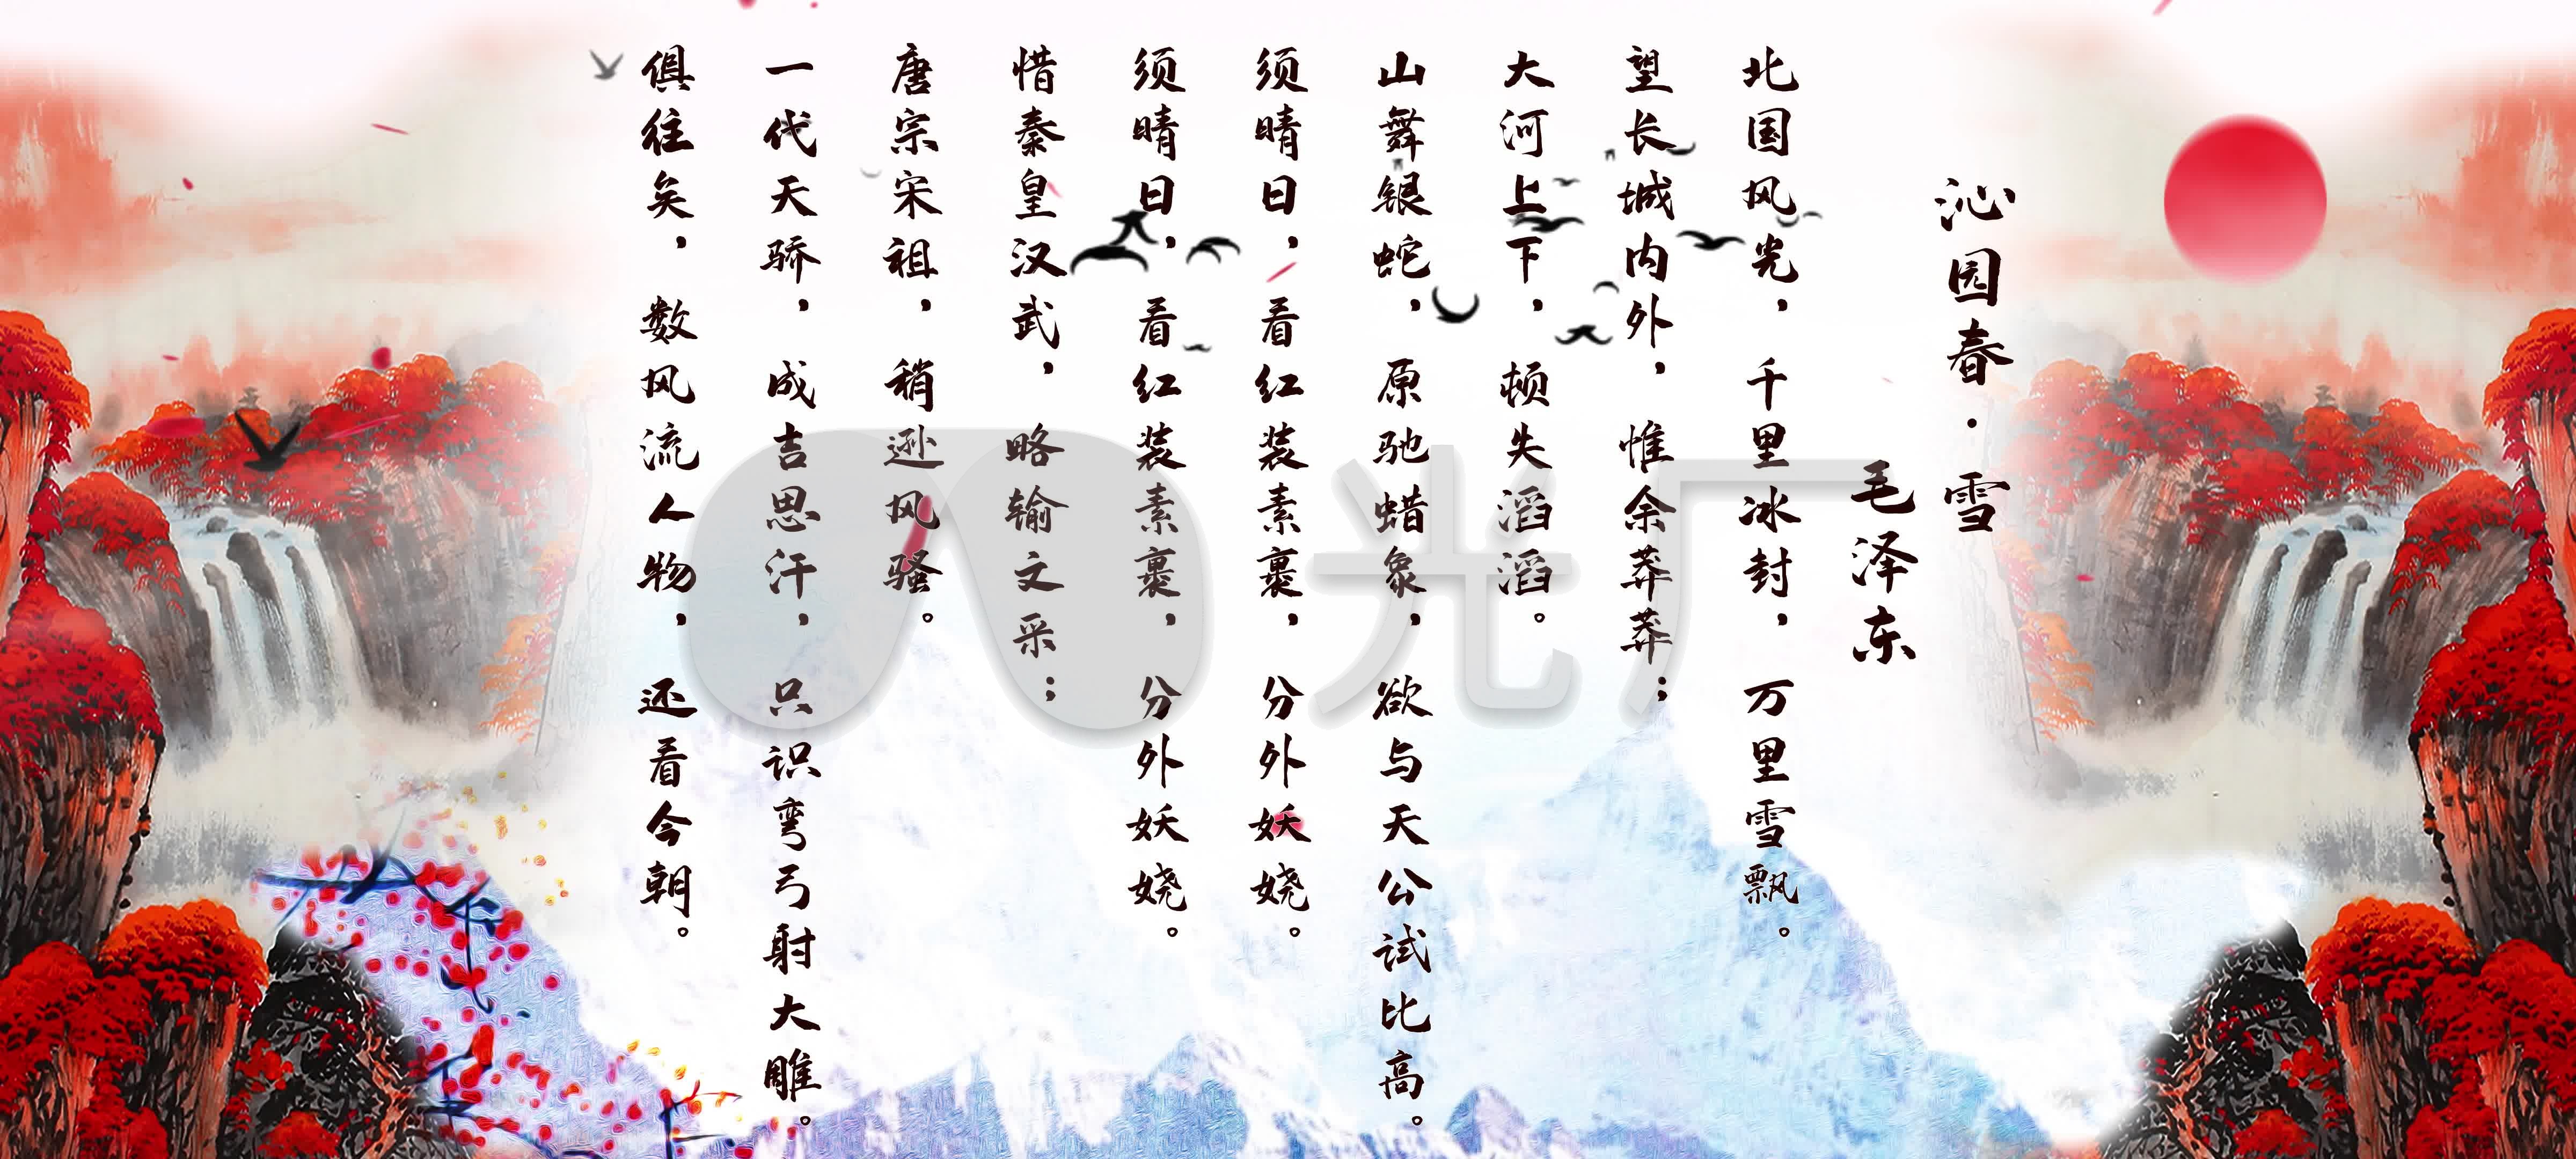 沁园春·雪
毛泽东
北国风光，千里冰封，万里雪飘。
望长城内外，惟余莽莽；
大河上下，顿失滔滔。
山舞银蛇，原驰蜡象，欲与天公试比高。
须晴日，看红装素裹，分外妖娆。
须晴日，看红装素裹，分外妖娆。
惜秦皇汉武，略输文采；
唐宗宋祖，稍逊风骚。
一代天骄，成吉思汗，只识弯弓射大雕。
俱往矣，数风流人物，还看今朝。
光厂